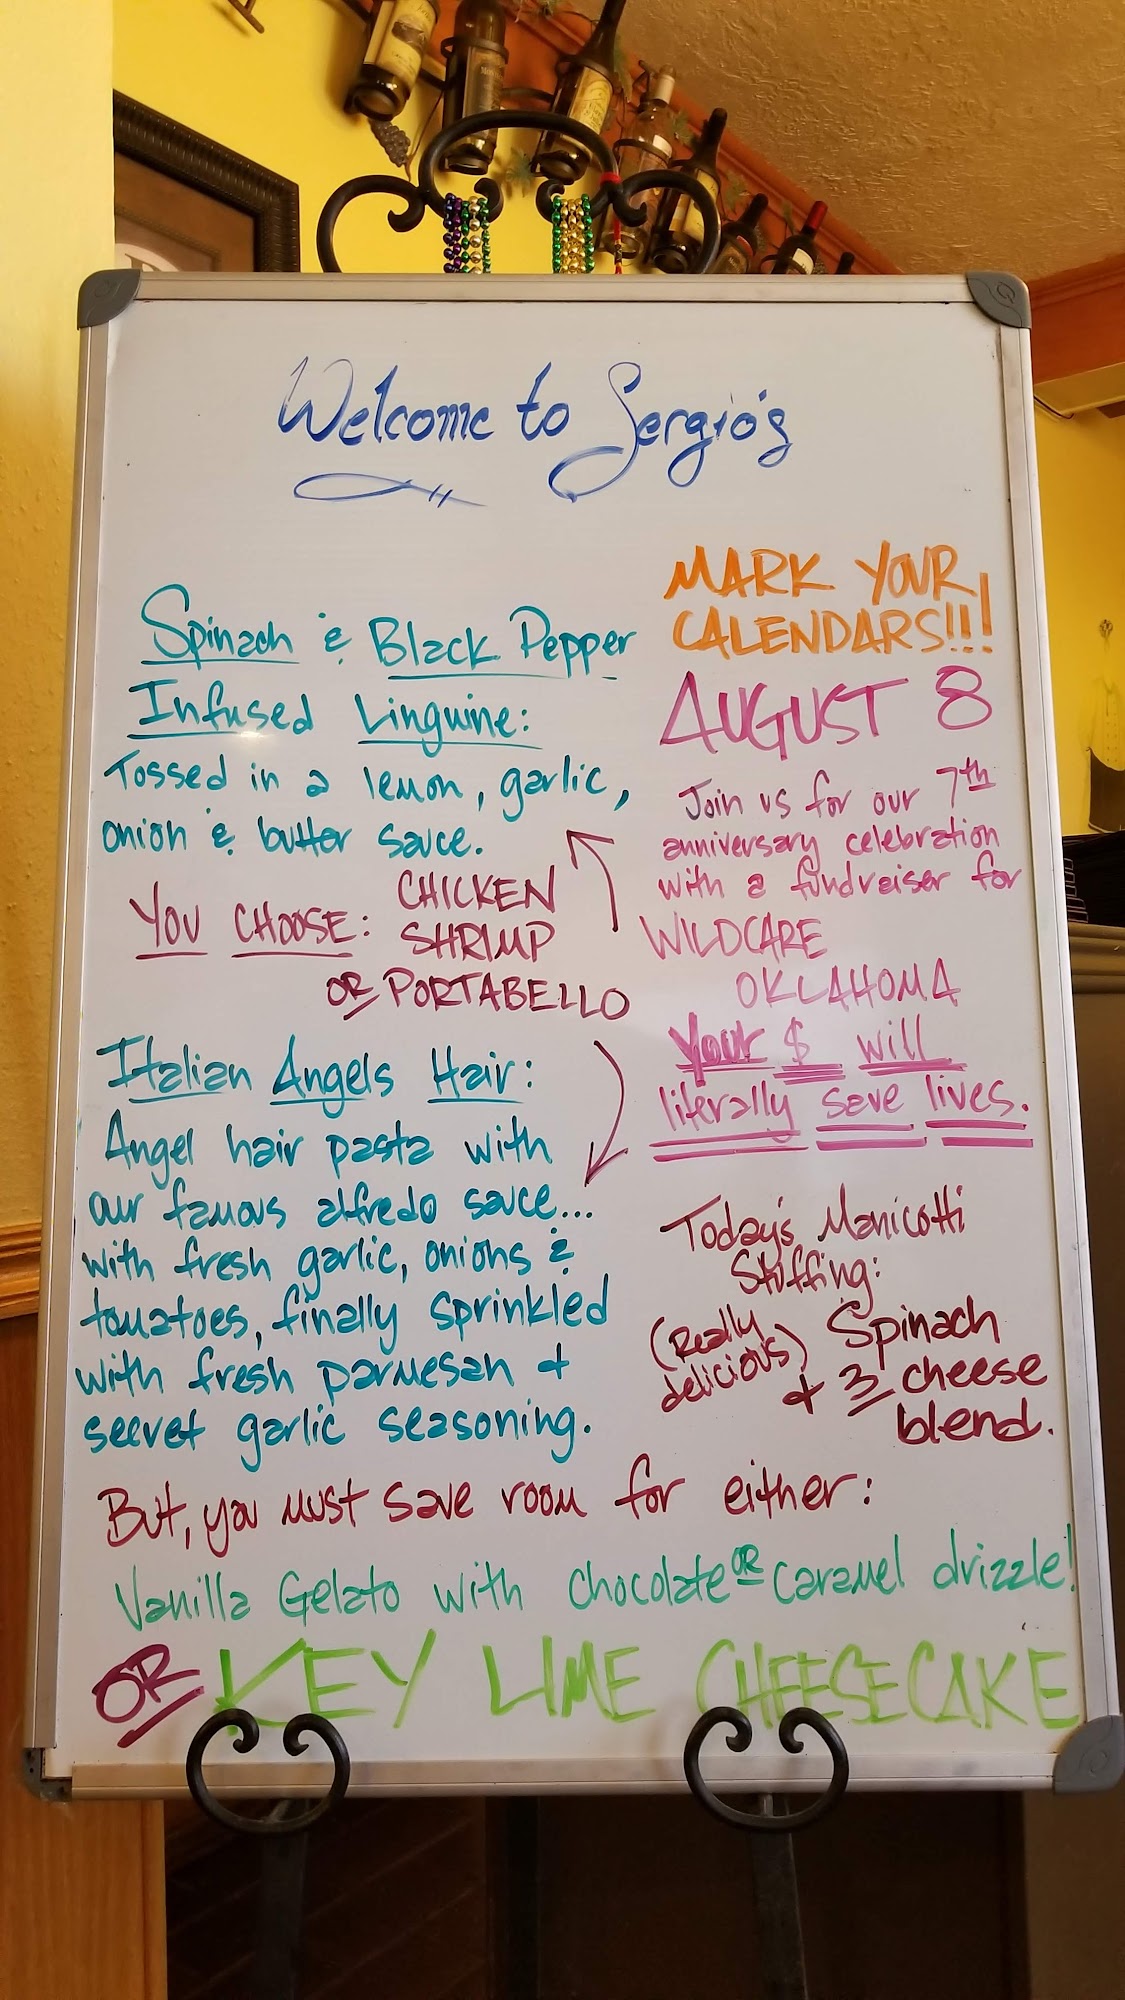 Welcome to Sergio's
Spinach & Black Pepper
Infused Linguine:
Tossed in a lemon, garlic,
onion & butter sauce.
YOU CHOOSE: CHICKEN
SHRIMP
OR PORTABELLO
Italian Angels Hair:
Angel hair pasta with
our famous alfredo sauce...
with fresh garlic, onions &
tomatoes, finally sprinkled
with fresh parmesan +
secret garlic seasoning.
MARK YOUR
CALENDARS!!!
AUGUST 8
Join us for our 7th
anniversary celebration
with a fundraiser for
WILDCARE
OKLAHOMA
Your $ will
literally save lives.
Today's Manicotti
Stuffing:
(Really
delicious)
Spinach
+ 3 cheese
blend.
But, you must save room for either:
Vanilla Gelato with chocolate OR caramel drizzle!
OR KEY LIME CHEESECAKE